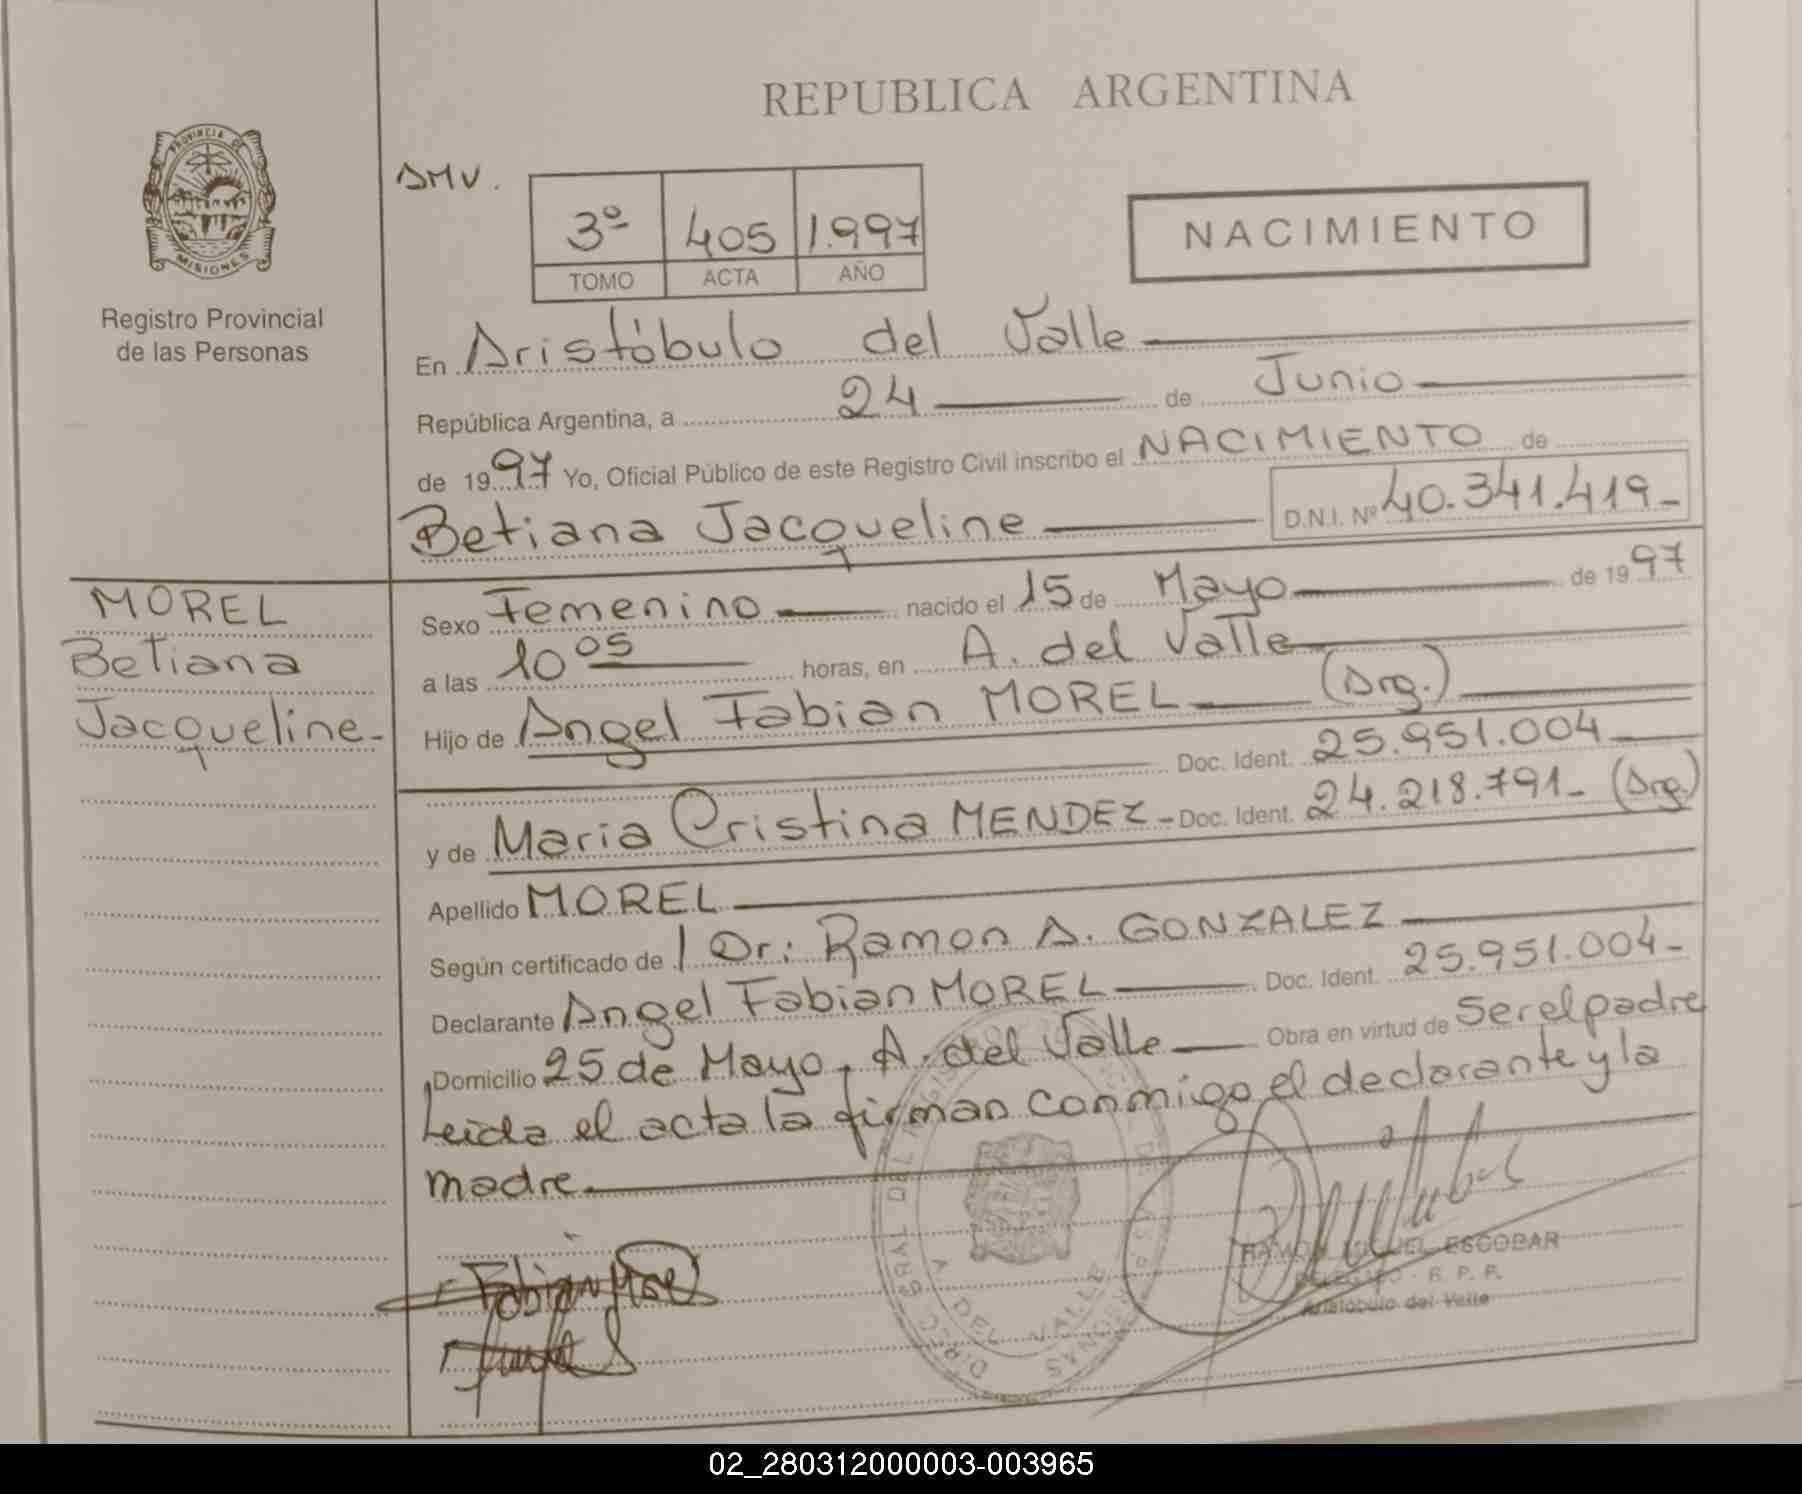 REPUBLICA ARGENTINA
PROVINCIA DE
MISIONES
Registro Provincial
de las Personas
AMV.
3º 405 1.997
TOMO ACTA AÑO
NACIMIENTO
En Aristóbulo del Valle
República Argentina, a 24 de Junio
de 1997 Yo, Oficial Público de este Registro Civil inscribo el NACIMIENTO de
Betiana Jacqueline D.N.I. Nº 40.341.419-
MOREL
Betiana
Jacqueline-
Sexo Femenino nacido el 15 de Mayo de 1997
a las 10 05 horas, en A. del Valle
Hijo de Angel Fabian MOREL (Arg.)
Doc. Ident. 25.951.004
y de Maria Cristina MENDEZ- Doc. Ident. 24.218.791- (Arg.)
Apellido MOREL
Según certificado de Dr: Ramon A. GONZALEZ
Declarante Angel Fabian MOREL Doc. Ident. 25.951.004-
Domicilio 25 de Mayo, A. del Valle Obra en virtud de Ser el padre
Leida el acta la firman conmigo el declarante y la
madre.
Fabian Morel
RAMON MIGUEL ESCOBAR
DELEGADO - R. P. P.
Aristóbulo del Valle
DEL VALLE
MISIONES
02_280312000003-003965